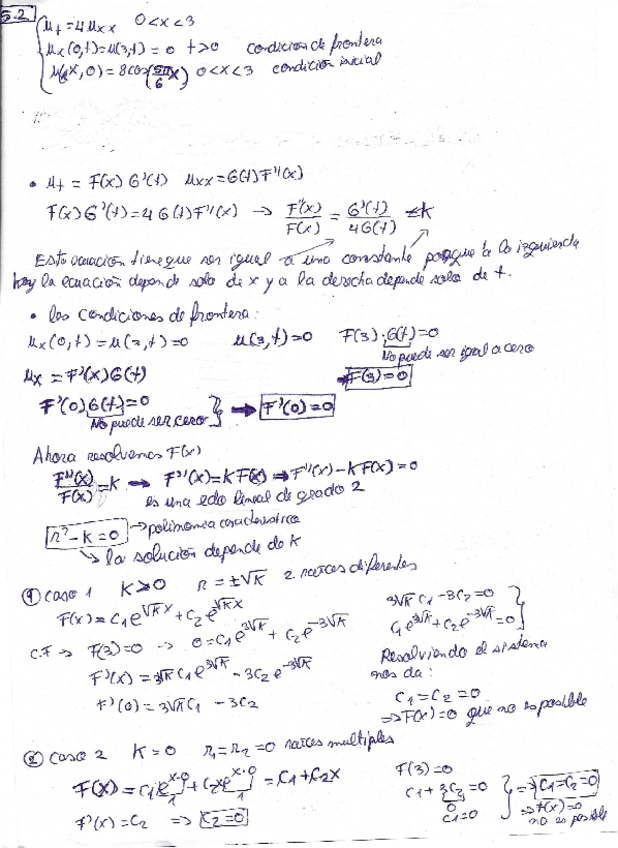 5.2 u_t = 4u_xx 0<x<3
u_x(0,t) = u(3,t) = 0 t>0 condición de frontera
u(x,0) = 8cos(5π/6 x) 0<x<3 condición inicial
• u_t = F(x) G'(t) u_xx = G(t) F''(x)
F(x) G'(t) = 4 G(t) F''(x) → F''(x)/F(x) = G'(t)/4G(t) = K
Esta ecuación tiene que ser igual a una constante porque a la izquierda
hoy la ecuación depende solo de x y a la derecha depende solo de t.
• las condiciones de frontera:
u_x(0,t) = u(3,t) = 0 u(3,t) = 0 F(3)·G(t) = 0
No puede ser igual a cero
u_x = F'(x) G(t) ⇒ F(3) = 0
F'(0) G(t) = 0 } → F'(0) = 0
No puede ser cero
Ahora resolvemos F(x)
F''(x)/F(x) = K → F''(x) = K F(x) ⇒ F''(x) - KF(x) = 0
es una edo lineal de grado 2
r² - K = 0 → polinomio característico
↳ la solución depende de K
① caso 1 K>0 r = ±√K 2 raíces diferentes
F(x) = C1 e^√K x + C2 e^√K x
C.F → F(3) = 0 → 0 = C1 e^3√K + C2 e^-3√K
F'(x) = 3√K C1 e^3√K - 3C2 e^-3√K
F'(0) = 3√K C1 - 3C2
3√K C1 - 3C2 = 0
C1 e^3√K + C2 e^-3√K = 0 }
Resolviendo el sistema
nos da:
C1 = C2 = 0
⇒ F(x) = 0 que no es posible
② caso 2 K = 0 r1 = r2 = 0 raíces multiples
F(x) = C1 e^x·0 + C2 x e^x·0 = C1 + C2 x
1 1
F'(x) = C2 ⇒ C2 = 0
F(3) = 0
C1 + 3C2 = 0 } ⇒ C1 = C2 = 0
0
C1 = 0 ⇒ F(x) = 0
no es posible